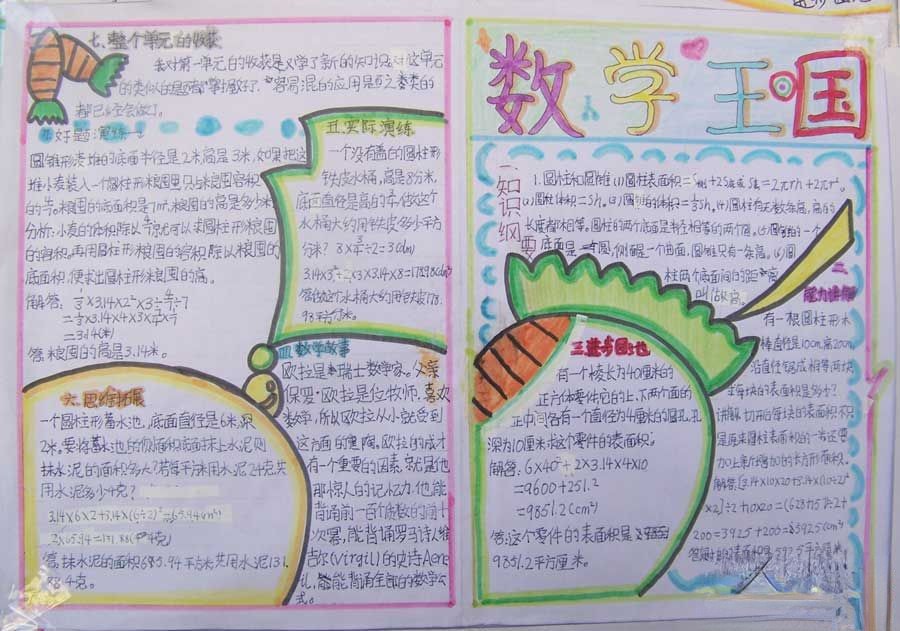 数学王国
一知识纲要
1.圆柱和圆锥(1)圆柱表面积=S侧+2S底或S表=2πrh+2πr²。
(2)圆柱体积=Sh。(3)圆锥的体积=⅓Sh。(4)圆柱有无数条高,高的
长度都相等。圆柱的两个底面是半径相等的两个圆。(5)圆锥的一个
底面是一个圆,侧面是一个曲面,圆锥只有一条高。(6)圆
柱两个底面间的距离
叫作高。
二能力讲解
有一根圆柱形木
棒直径是10cm,高20cm
沿直径锯成相等两块
每块的表面积是多少?
讲解:切开的每块的表面积不只
是原来圆柱表面积的一半还要
加上新增加的长方形面积。
解答:(3.14×10×20+3.14×(10÷2)²
×2)÷2+10×20=(628+157)÷2+
200=392.5+200=592.5(cm²)
三进步园地
有一个棱长为40厘米的
正方体零件,它的上、下两个面的
正中间各有一个直径为4厘米的圆孔,孔
深为10厘米,求这个零件的表面积。
解答:6×40²+2×3.14×4×10
=9600+251.2
=9851.2(cm²)
答:这个零件的表面积是
9851.2平方厘米。
四数学故事
欧拉是瑞士数学家。父亲
保罗·欧拉是位牧师,喜欢
数学,所以欧拉从小就受到
这方面的熏陶。欧拉的成才
有一个重要的因素,就是他
那惊人的记忆力,他能
背诵前一百个质数的前十
次幂,能背诵罗马诗人维
吉尔(Virgil)的史诗Aene
il,能背诵全部的数学公
式。
五.实际演练
一个没有盖的圆柱形
铁皮水桶,高是8分米,
底面直径是高的¾,做这个
水桶大约用铁皮多少平方
分米?
答:做这个水桶大约用铁皮178.
98平方分米。
六.思维拓展
一个圆柱形蓄水池,底面直径是6米,深
2米。要将蓄水池的侧面和底面抹上水泥,则
抹水泥的面积多大?若每平方米用水泥2千克,共
用水泥多少千克?
3.14×6×2+3.14×(6÷2)²=65.94(m²)
2×65.94=131.88(千克)
答:抹水泥的面积65.94平方米,共用水泥131.
88千克。
七、整个单元的收获
我对第一单元的收获是又学了新的知识,对这单元
的类似的题都掌握好了。
都已经会做了。
好题演练
圆锥形麦堆的底面半径是2米,高是3米,如果把这
堆小麦装入一个圆柱形粮囤里,只占粮囤容积
的4/7,粮囤的底面积是7m²,粮囤的高是多少米?
分析:小麦的体积除以4/7就可以求圆柱形粮囤
的容积,再用圆柱形粮囤的容积除以粮囤的
底面积,便求出圆柱形粮囤的高。
解答:⅓×3.14×2²×3÷4/7÷7
=3.14(米)
答:粮囤的高是3.14米。